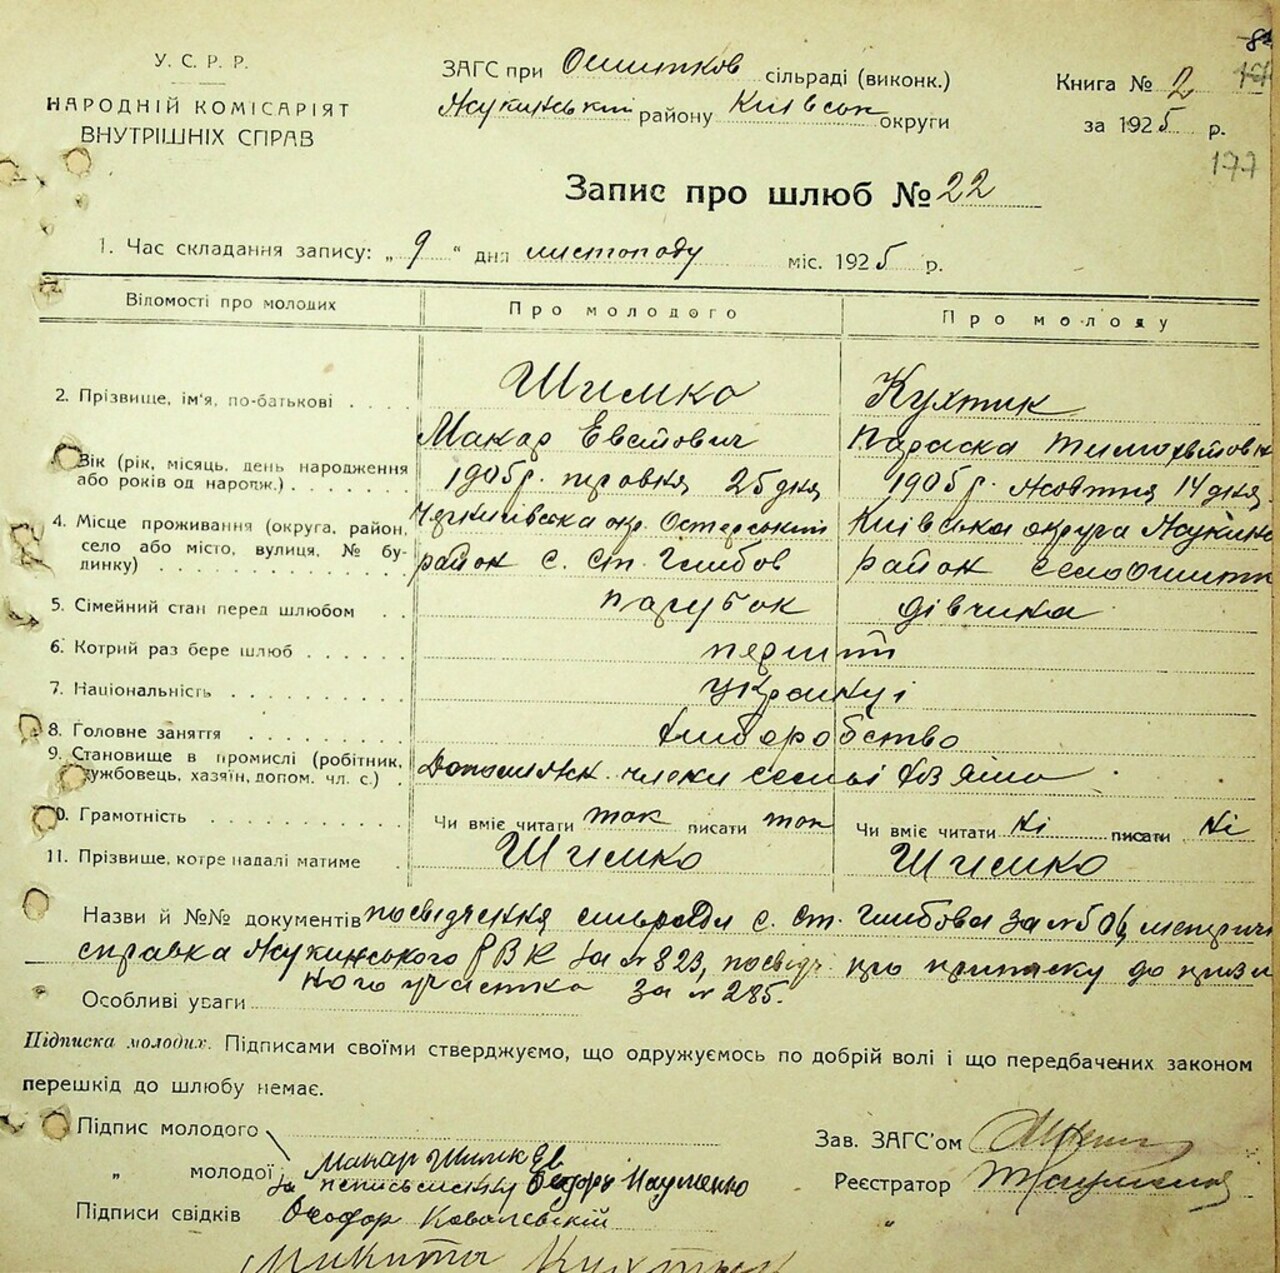 У. С. Р. Р.
НАРОДНІЙ КОМІСАРІЯТ
ВНУТРІШНІХ СПРАВ
ЗАГС при Ошитков сільраді (виконк.)
Жукинський району Київськ округи
Книга № 2
за 1925 р.
177
Запис про шлюб № 22
1. Час складання запису: „ 9 “ дня листопаду міс. 1925 р.
Відомості про молодих
Про молодого
Про молоду
2. Прізвище, ім'я, по-батькові
Шимко
Кухтик
Макар Евстович
Параска
Вік (рік, місяць, день народження або років од нарødж.)
1905р. травня 25 дня
1905р. жовтня 14 дня
4. Місце проживання (округа, район, село або місто, вулиця, № будинку)
окр. Остерський
район с. Ст. Глибов
Київська округа Жукин
район село Ошитк
5. Сімейний стан перед шлюбом
парубок
дівчина
6. Котрий раз бере шлюб
перший
7. Національність
українці
8. Головне заняття
хліборобство
9. Становище в промислі (робітник, службовець, хазяїн, допом. чл. с.)
члени семьі
10. Грамотність
Чи вміє читати так писати так
Чи вміє читати ні писати ні
11. Прізвище, котре надалі матиме
Шимко
Шимко
Назви й №№ документів посвідчення сільради с. Ст. Глибова за №506, метрич
справка Жукинського РВК за №823, посвідч. про приписку до призи
ного участка за №285.
Особливі уваги
Підписка молодих. Підписами своїми стверджуємо, що одружуємось по добрій волі і що передбачених законом
перешкід до шлюбу немає.
Підпис молодого
„ молодої
Макар Шимк
за неписьменну Федор Науменко
Підписи свідків Феодор Ковалевський
Микита Кухтик
Зав. ЗАГС'ом
Реєстратор